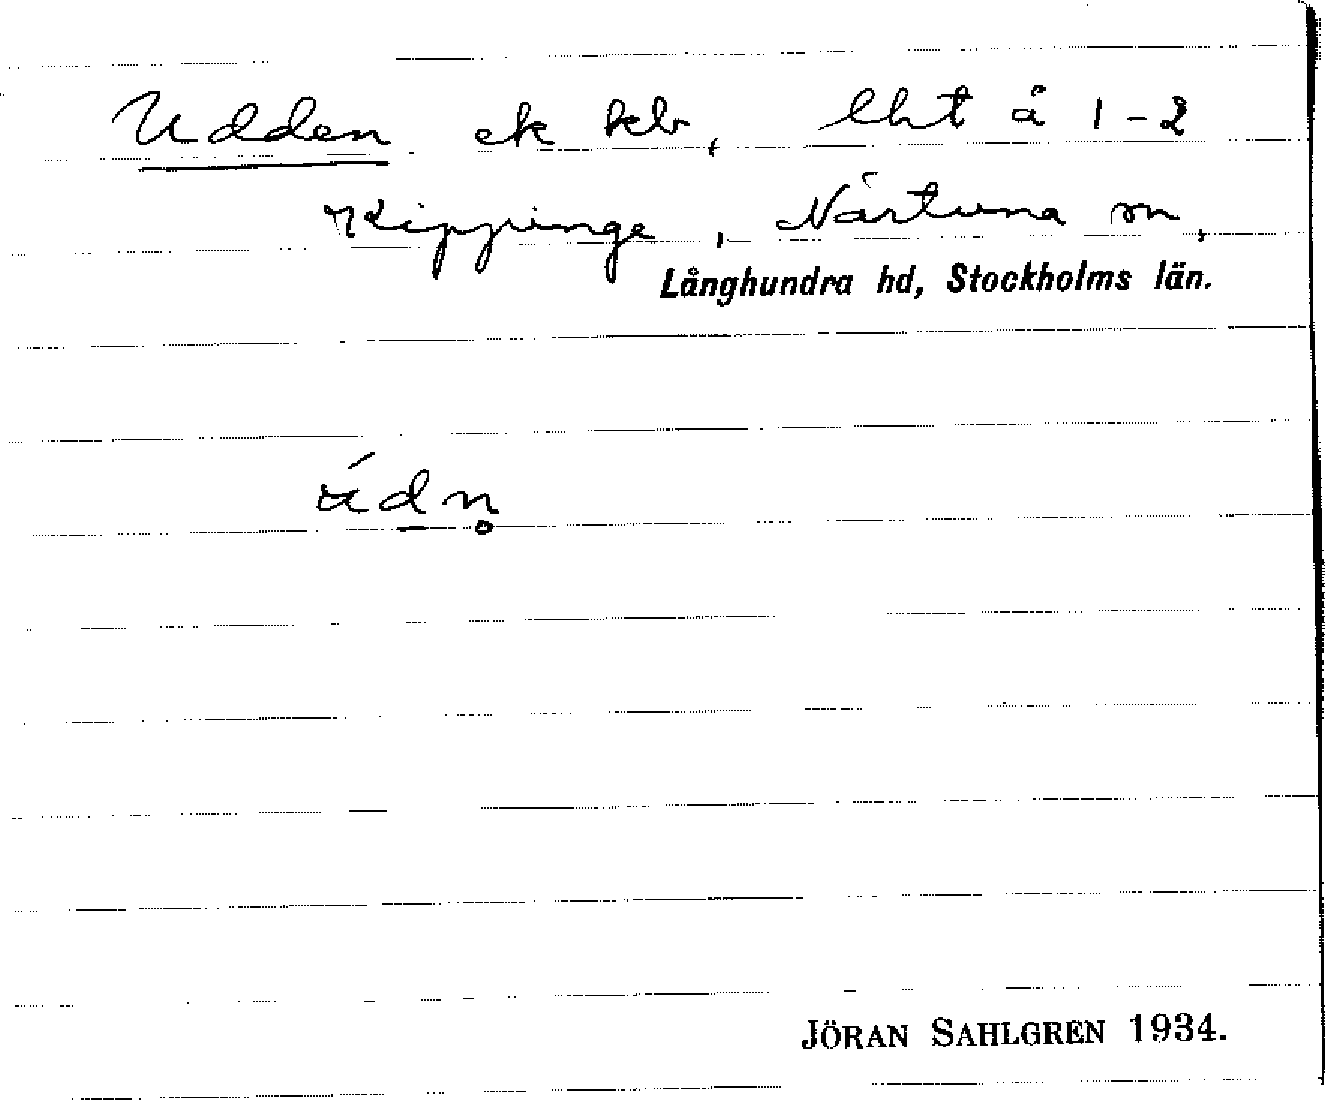 Udden ek kb, lht å 1-2
Kippinge, Närtuna sn,
Långhundra hd, Stockholms län.
údn̥
JÖRAN SAHLGREN 1934.